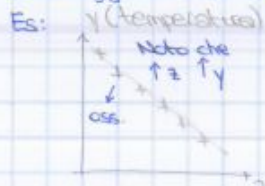 Es:
Y (temperatura)
Noto che
↑ z ↑ Y
oss.